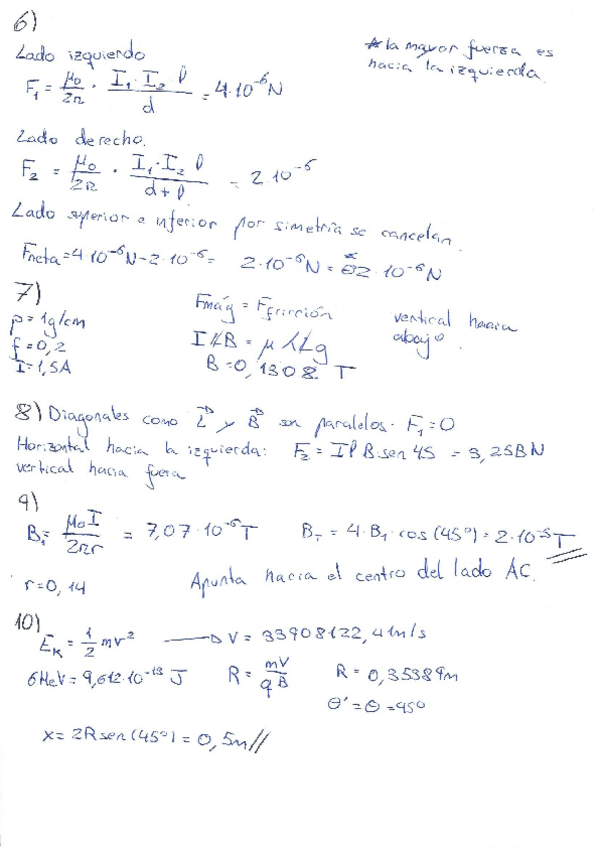 6)
Lado izquierdo
*la mayor fuerza es
hacia la izquierda.
F₁ = μ₀/2π · I₁·I₂ l/d = 4·10⁻⁶N
Lado derecho.
F₂ = μ₀/2π · I₁·I₂ l/d+l = 2·10⁻⁶
Lado superior e inferior por simetría se cancelan.
Fneta = 4·10⁻⁶N - 2·10⁻⁶ = 2·10⁻⁶N = 2·10⁻⁶N
7)
ρ = 1g/cm
f = 0,2
I = 1,5A
Fmág = Ffricción
I l B = μ λ l g
B = 0,1308 T
vertical hacia
abajo.
8) Diagonales como L y B son paralelos. F₁ = 0
Horizontal hacia la izquierda: F₂ = I l B·sen 45 = 3,25BN
vertical hacia fuera
9)
B₁ = μ₀I/2πr = 7,07·10⁻⁶T
B_T = 4·B₁·cos(45°) = 2·10⁻⁵T
r = 0,14
Apunta hacia el centro del lado AC.
10)
E_K = 1/2 mv² → V = 33908122,4 m/s
6MeV = 9,612·10⁻¹³ J
R = mV/qB
R = 0,35389m
θ' = θ = 45°
x = 2R sen(45°) = 0,5m//